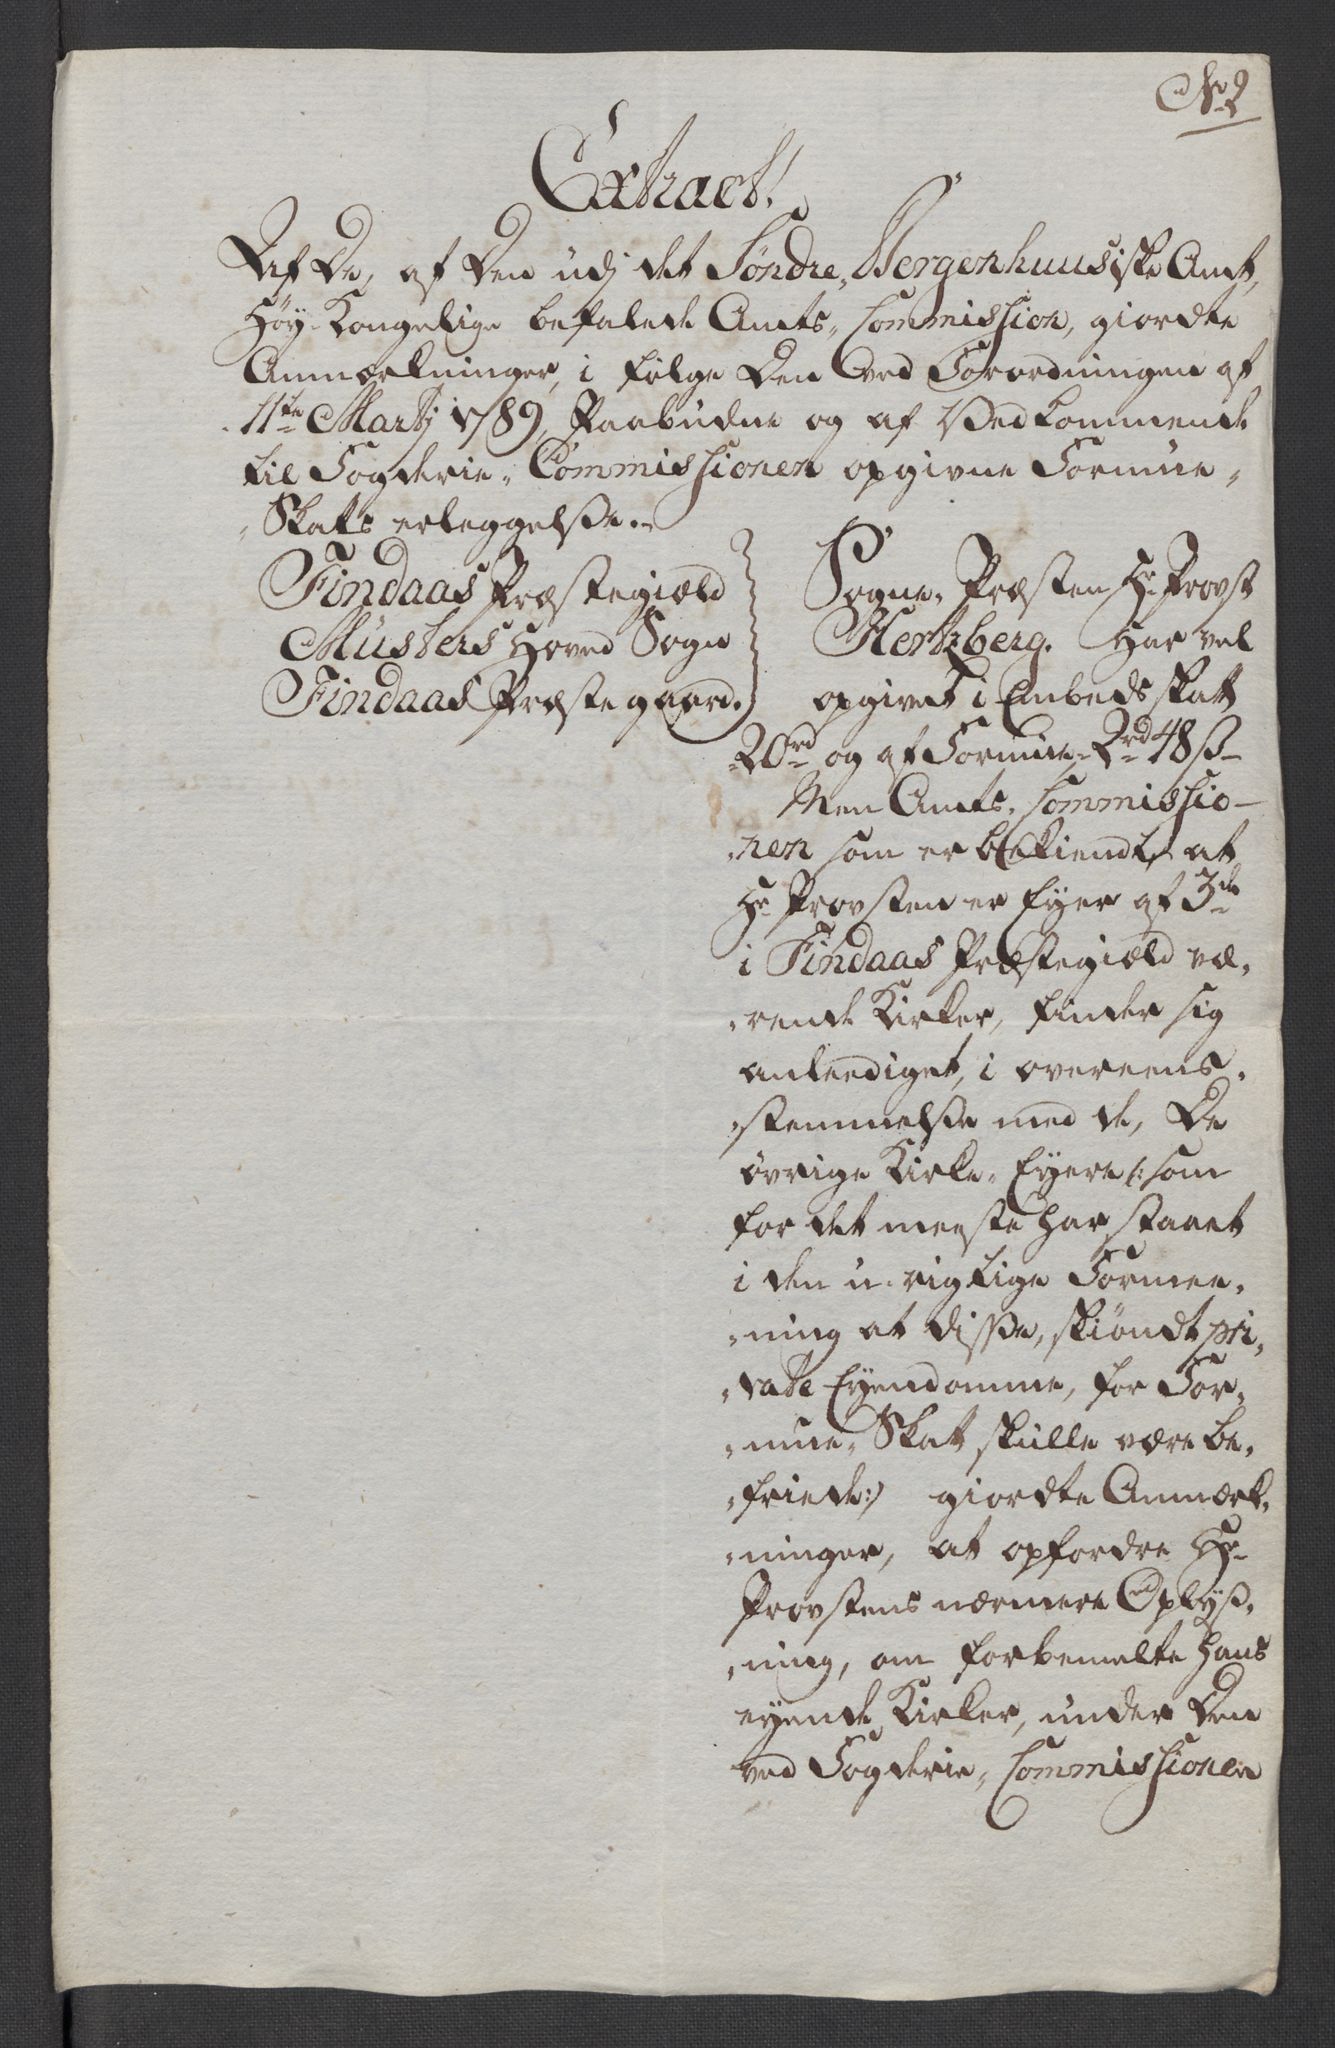 No 2
Extract!
Af De, af Den udj det Søndre Bergenhuusiske Amt,
Høy-Kongelige befalede Amts-Commission, giordte
Anmærkninger, i følge Den ved Forordningen af
11te Martj 1789, Paabudne og af Vedkommende
til Fogderie-Commissionen opgivne Formue-
-Skats erleggelsse.-
Findaas Præstegiæld
Müsters Hoved Sogn
Findaas Præstegaard.
Sogne-Præsten Hr Provst
Hertzberg. Har vel
opgivet i Embeds skatt
20rd og af Formue 2rd 48ß-
Men Amts-Commissio-
-nen som er bekiendt, at
Hr Provsten er Eyer af 3de
i Findaas Præstegiæld væ-
-rende Kirker, finder sig
anleediget, i overeens-
-stemmelsse med de, De
øvrige Kirke-Eyere /: som
for det meeste har staaet
i den u-rigtige Formee-
-ning at disse, skiøndt pri-
-vate Eyendomme, for For-
-mue-Skat skulle være be-
-friede :/ giordte Anmærk-
-ninger, at opfordre Hr
Provstens nærmere Oplyß-
-ning, om forbemelte Hans
eyende Kirker, under Den
ved Fogderie-Commissionen